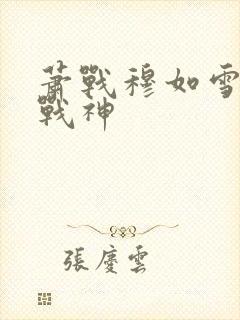 蕭戰穆如雪
戰神
張慶雲